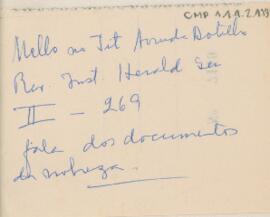 CMP 1.1.9.2.133
Mello no Tit Arruda Botelho
Rev. Inst. Herald Gen
II – 269
fala dos documentos
da nobreza.